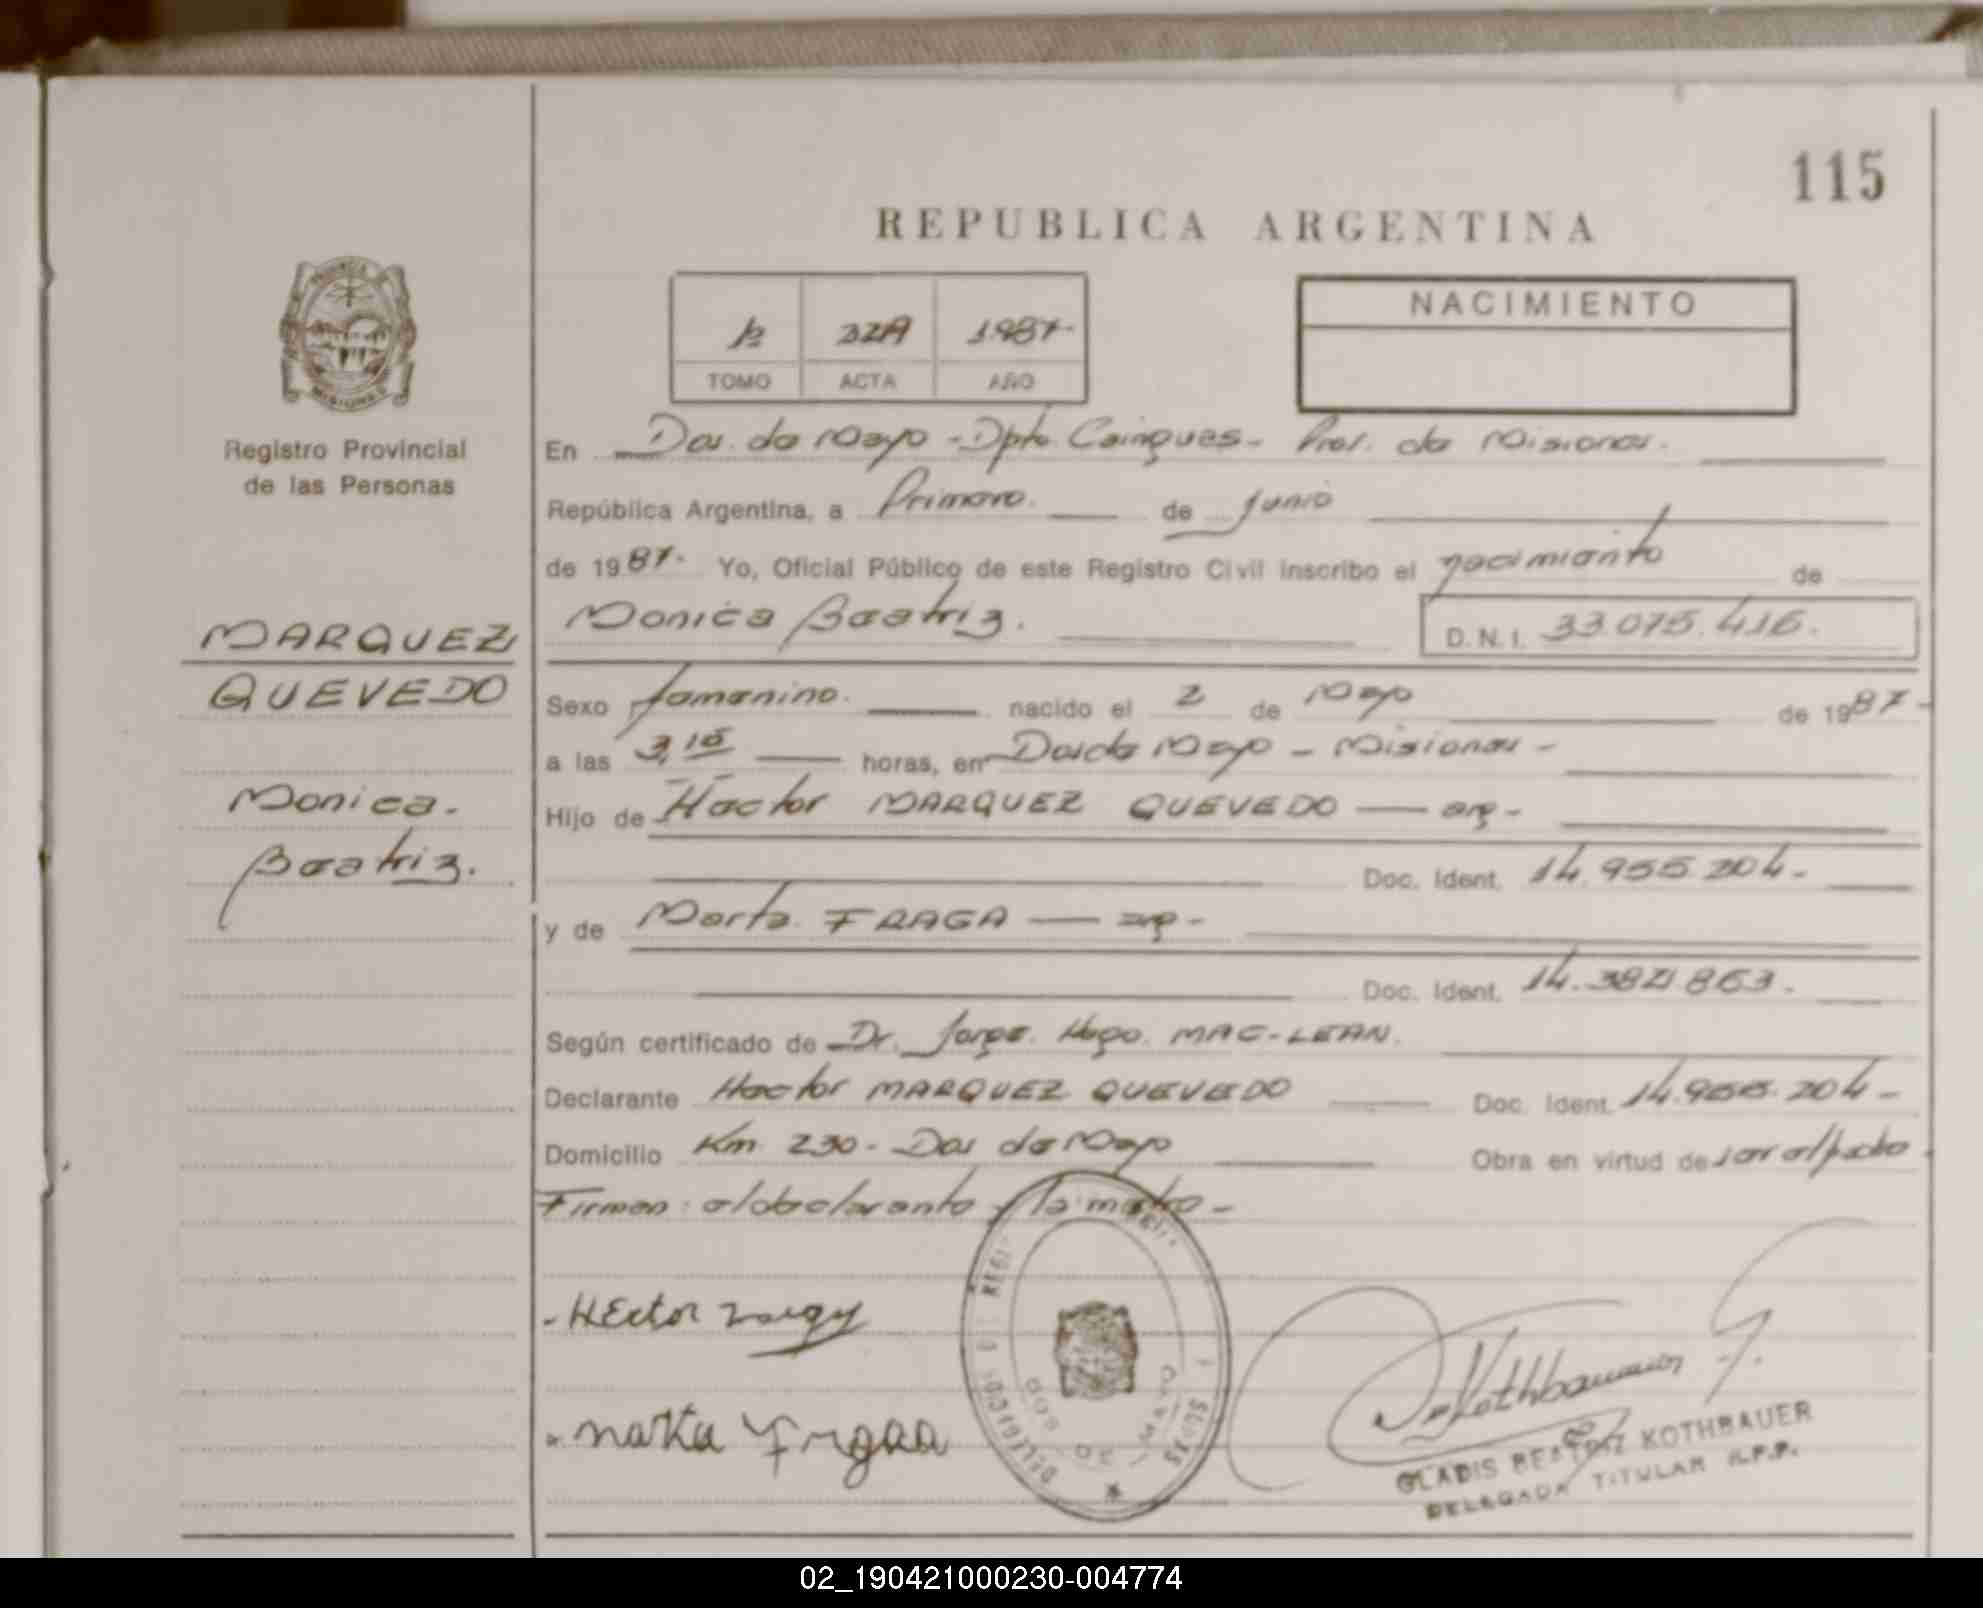 115
REPUBLICA ARGENTINA
NACIMIENTO
1987-
TOMO ACTA AÑO
Registro Provincial
de las Personas
MARQUEZ
QUEVEDO
Monica
Beatriz.
En Dos de Mayo - Dpto. Cainguas - Prov. de Misiones.
República Argentina, a Primero de Junio
de 1987- Yo, Oficial Público de este Registro Civil inscribo el nacimiento de
Monica Beatriz. D.N.I. 33.075.416.
Sexo femenino. nacido el 2 de Mayo de 1987-
a las 3,15 horas, en Dos de Mayo - Misiones -
Hijo de Hector MARQUEZ QUEVEDO — arg-
Doc. Ident. 14.955.204-
y de Marta FRAGA — arg-
Doc. Ident. 14.384.863.
Según certificado de Dr. Jorge Hugo MAC-LEAN.
Declarante Hector MARQUEZ QUEVEDO Doc. Ident. 14.955.204-
Domicilio Km 230- Dos de Mayo Obra en virtud de ser el padre
Firman: el declarante y la madre-
Hector
Marta Fraga
DOS DE MAYO
GLADIS BEATRIZ KOTHBAUER
DELEGADA TITULAR R.P.P.
02_190421000230-004774